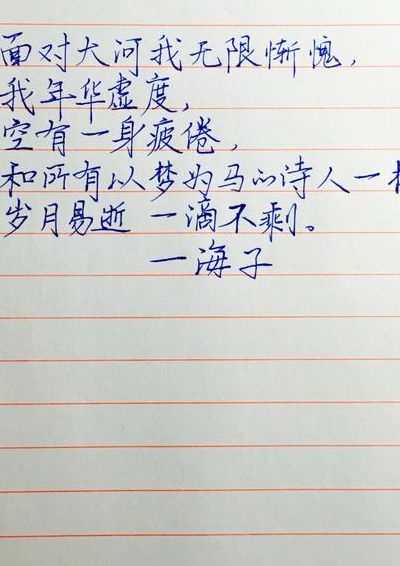 面对大河我无限惭愧，
我年华虚度，
空有一身疲倦，
和所有以梦为马的诗人一样
岁月易逝 一滴不剩。
—海子